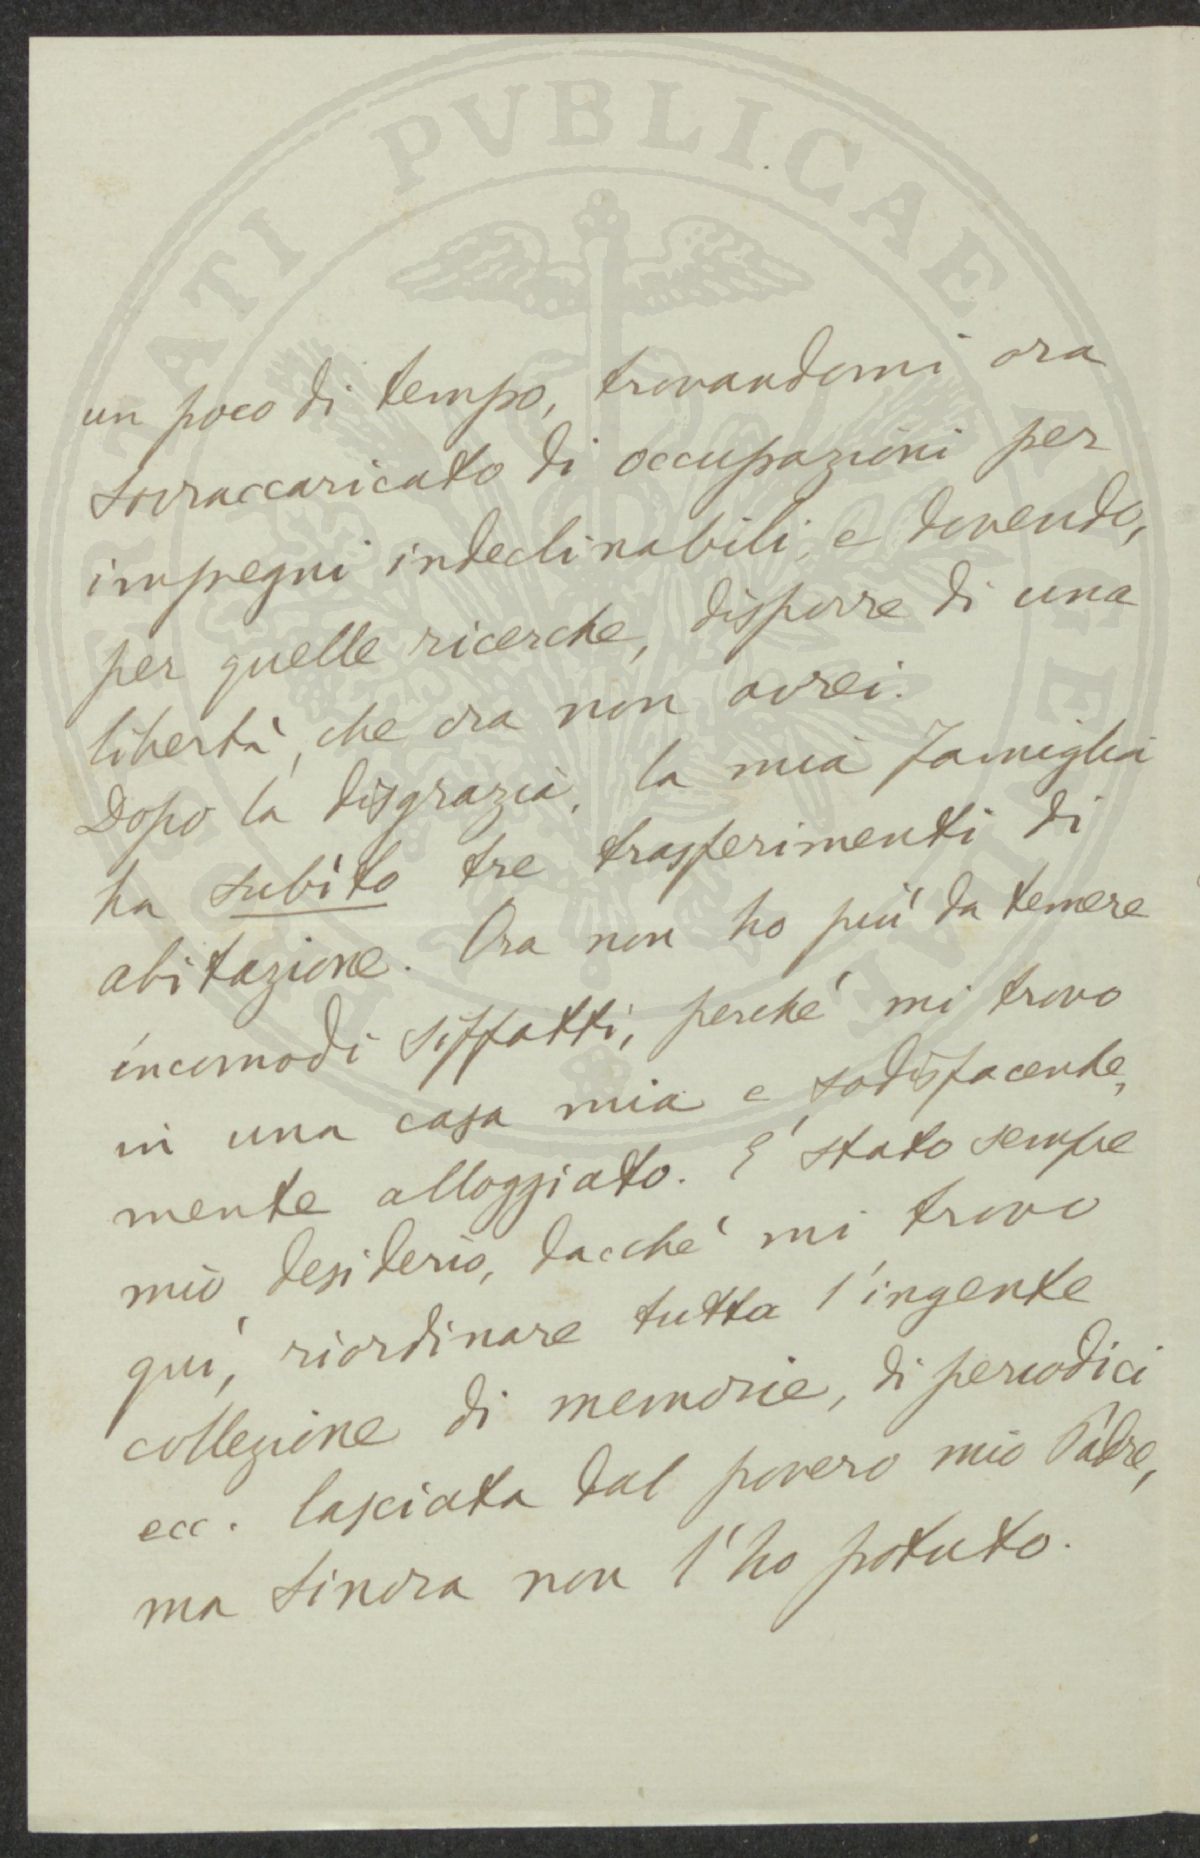 un poco di tempo, trovandomi ora
sovraccaricato di occupazioni per
impegni indeclinabili, e dovendo,
per quelle ricerche, disporre di una
libertà, che ora non avrei.
Dopo la disgrazia, la mia famiglia
ha subìto tre trasferimenti di
abitazione. Ora non ho più da temere
incomodi siffatti, perché mi trovo
in una casa mia e sodisfacente,
mente alloggiato. È stato sempre
mio desiderio, dacché mi trovo
qui, riordinare tutta l'ingente
collezione di memorie, di periodici
ecc. lasciata dal povero mio Padre,
ma sinora non l'ho potuto.